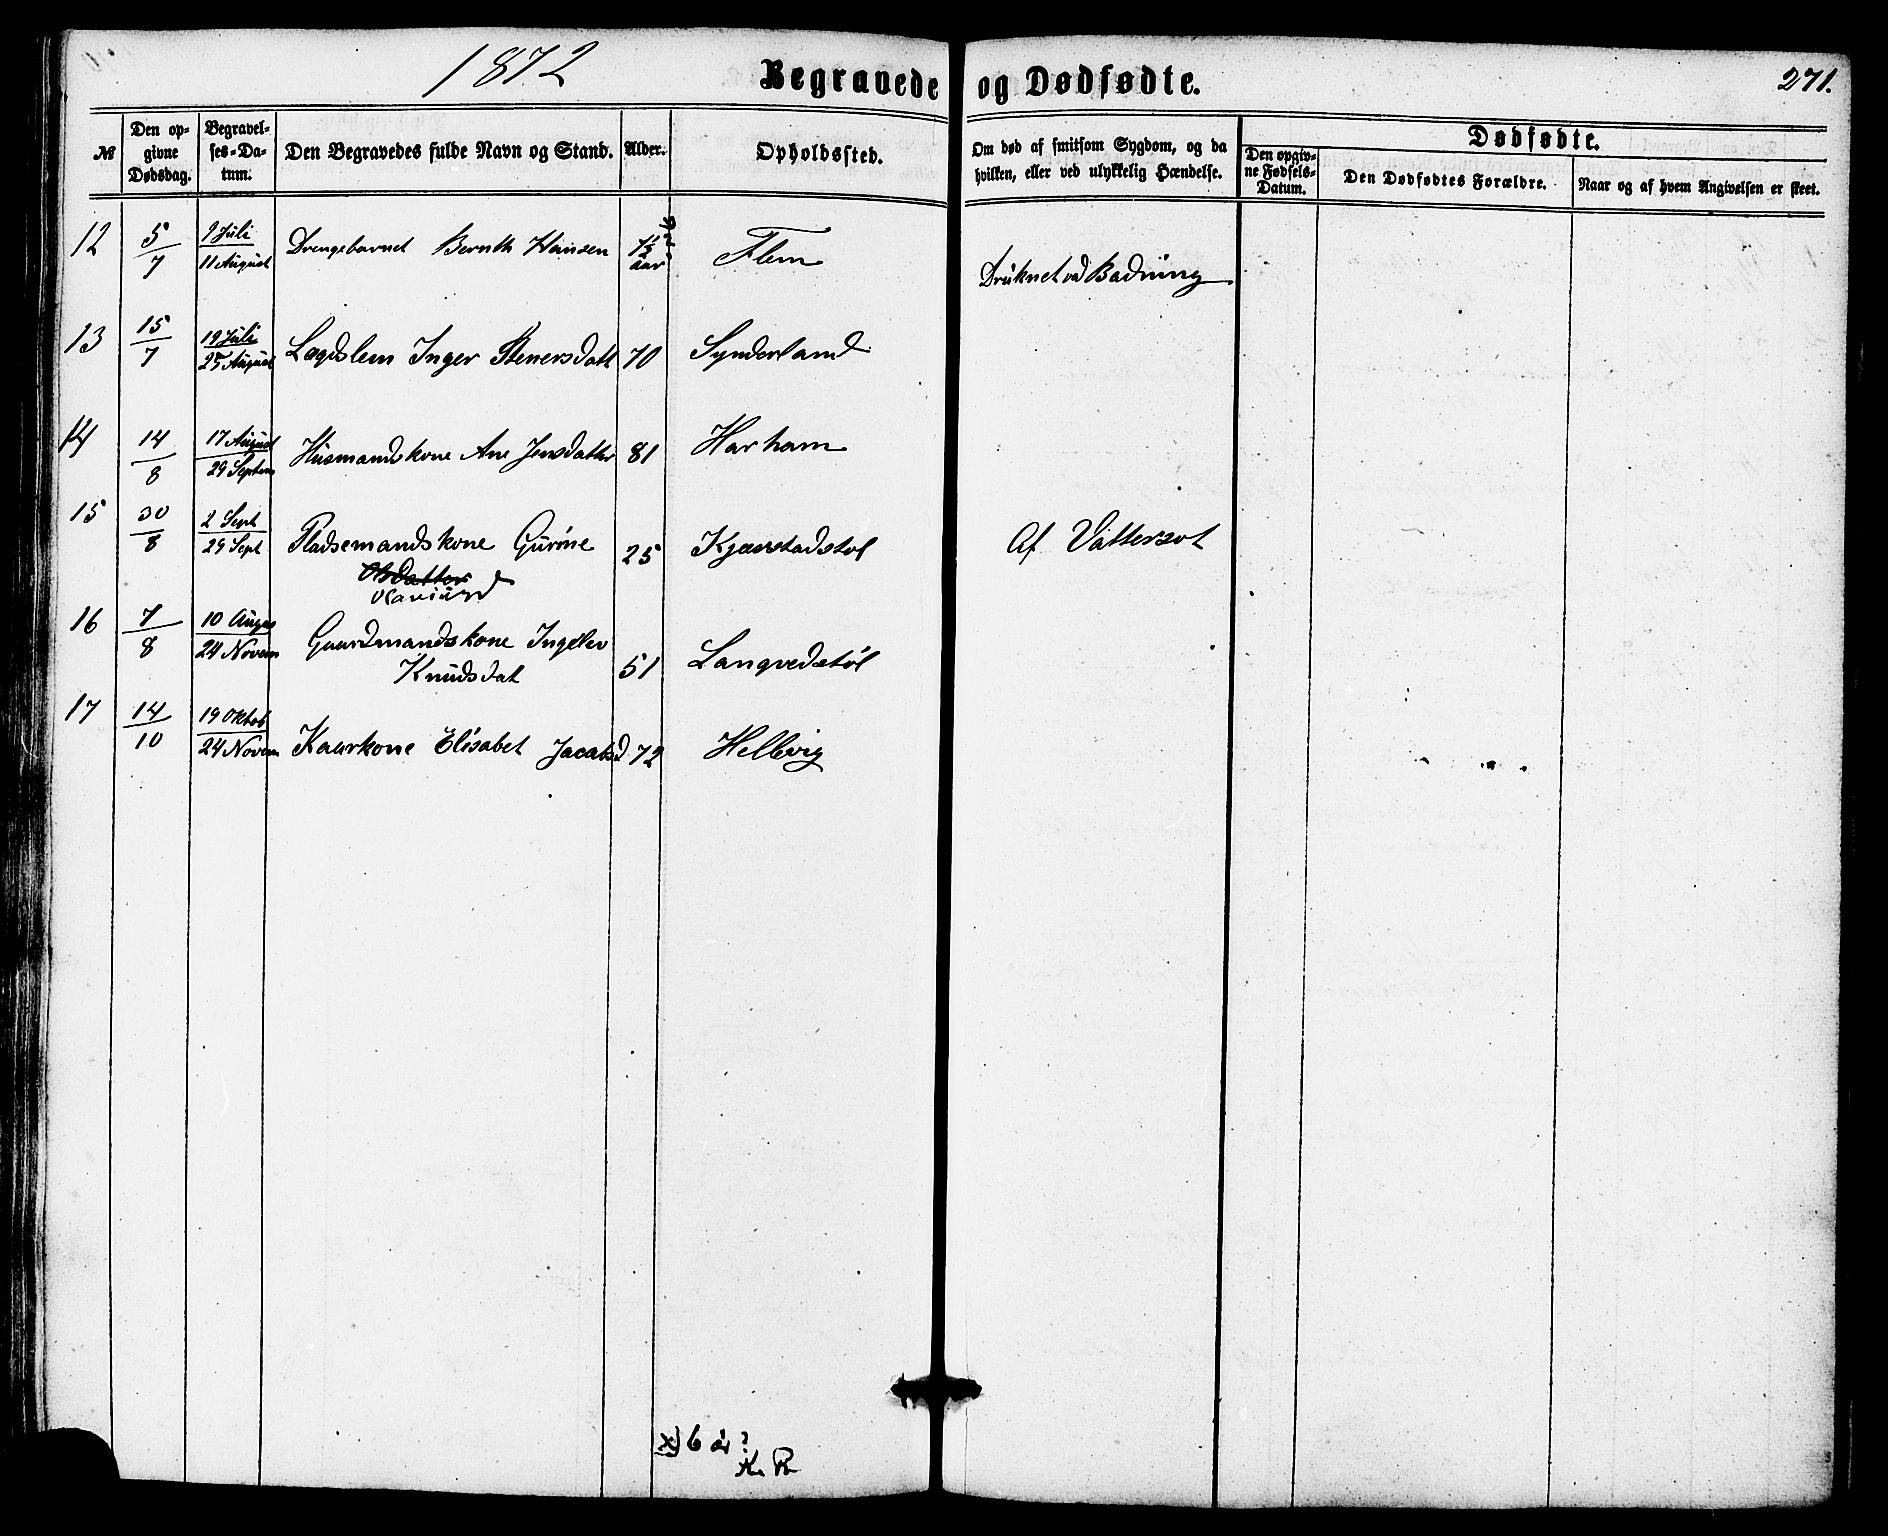 1872 Begravede og Dødfødte. 271.
№ Den opgivne Dødsdag. Begravelses-Datum. Den Begravedes fulde Navn og Stand. Alder. Opholdssted. Om død af smitsom Sygdom, og da hvilken, eller ved ulykkelig Hændelse. Dødfødte. Den opgivne Fødsels-Datum. Den Dødfødtes Forældre. Naar og af hvem Angivelsen er skeet.
12 5/7 9 Juli 11 August Drengebarnet Bernth Hansen 7½ aar Flem Druknet ved Badning
13 15/7 19 Juli 25 August Lægdslem Inger Stenersdatt 70 Synderland
14 14/8 17 August 29 Septem Husmandskone Ane Jensdatter 81 Harham
15 30/8 2 Sept 29 Sept Pladsemandskone Gurine 25 Kjærstadstøl Af Vattersot
Olsdatter
16 7/8 10 Augus 24 Novem Gaardmandskone Ingelev
Knudsdat 51 Langvedstøl
17 14/10 19 Oktob 24 Novem Kaarkone Elisabet Jacobsd 72 Hellevig
x) 6 år?